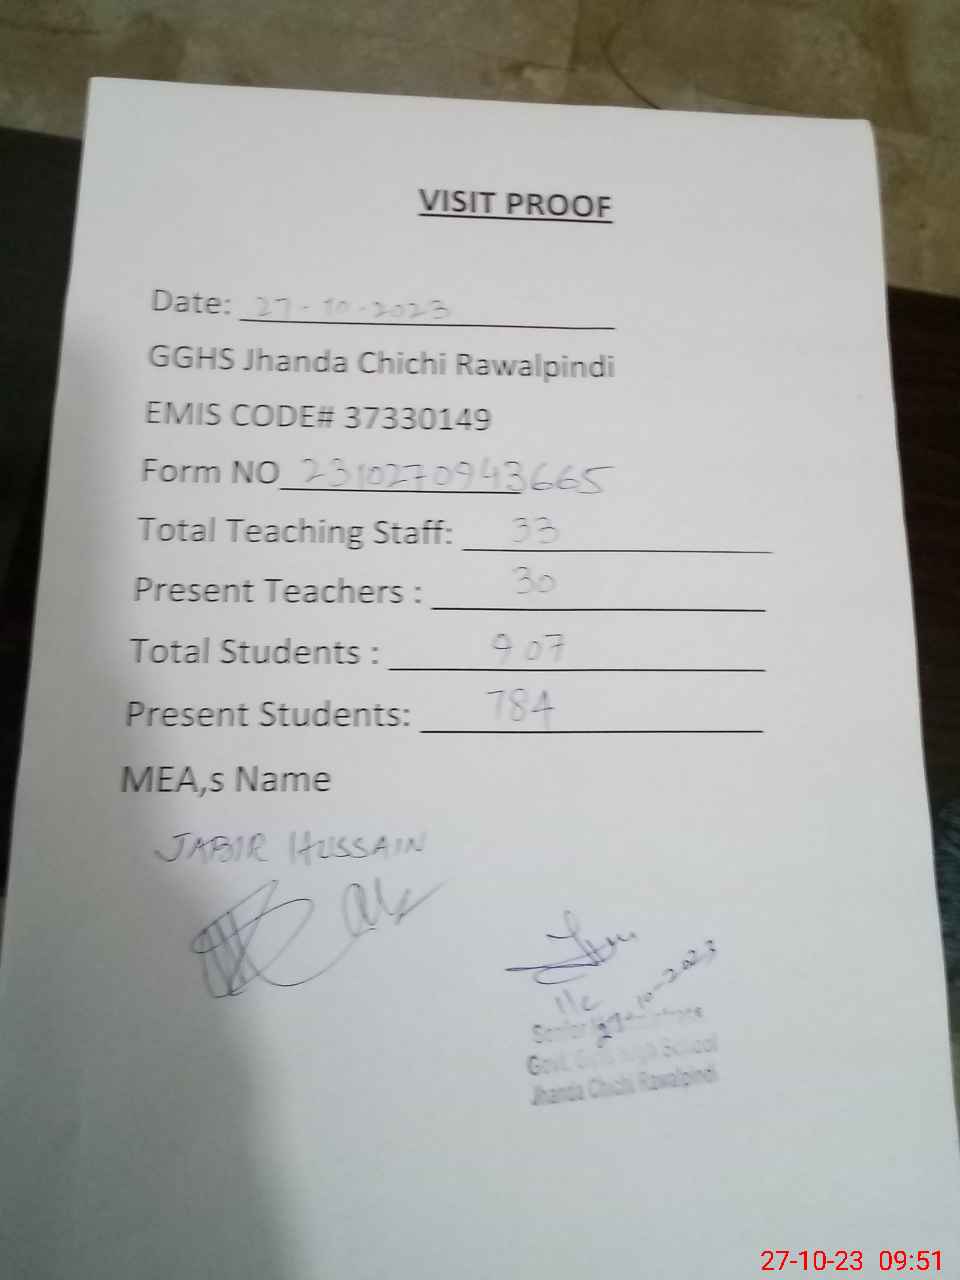 VISIT PROOF
Date: 27-10-2023
GGHS Jhanda Chichi Rawalpindi
EMIS CODE# 37330149
Form NO 2310270943665
Total Teaching Staff: 33
Present Teachers : 30
Total Students : 907
Present Students: 784
MEA,s Name
JABIR HUSSAIN
27-10-2023
Senior
Govt. Girls High School
Jhanda Chichi Rawalpindi
27-10-23 09:51